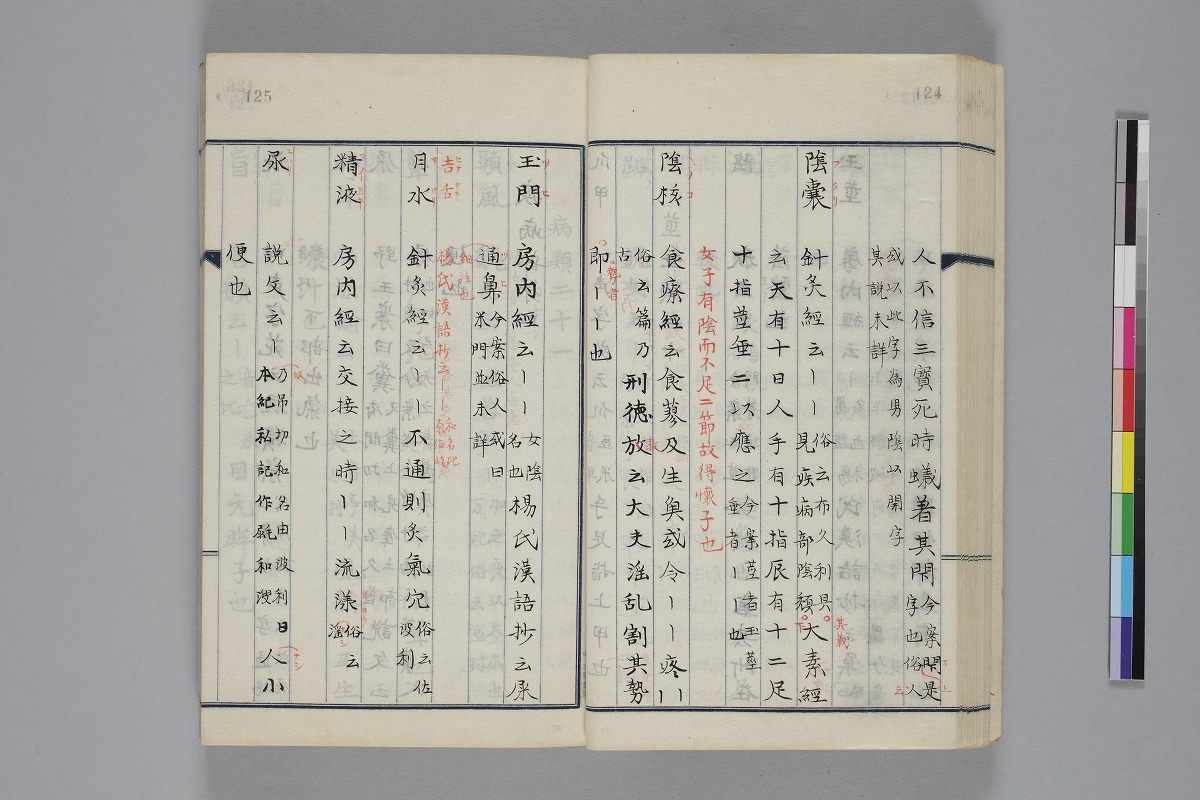 124
人不信三寶死時蟻著其閇今案閇是字也俗人
或以此字為男陰以開字
其說未詳
陰囊
針灸經云〡〡俗云布久利見疾病部陰頽大素經
云天有十日人手有十指辰有十二足
十指莖垂二以應之今案莖者玉莖也垂者〡〡也
女子有陰而不足二節故得懷子也
陰核
食療經云食蓼及生魚或令〡〡疼〡〡
俗云篇乃古
刑德放云大夫淫乱割其勢
勢者
即〡〡也
125
玉門
房内經云〡〡女陰名也楊氏漢語抄云屎
通鼻今案俗人或曰米門並未詳
吉舌
楊氏漢語抄云〡〡
月水
針灸經云〡〡不通則灸氣穴俗云佐波利
精液
房内經云交接之時〡〡流漾俗云
尿
說文云〡乃吊切和名由波利日本紀私記作𣬠和 人小
便也